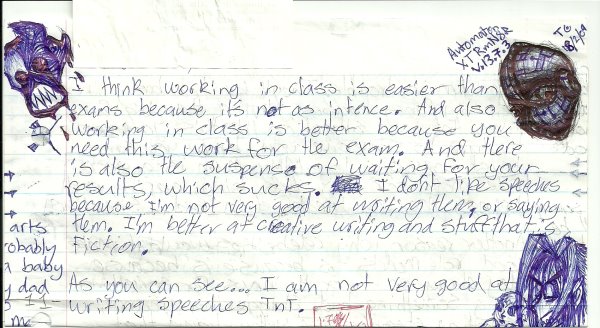 Automaton
XTRmNØR
V.13.7.3
I think working in class is easier than
exams because it's not as intence. And also
working in class is better because you
need this work for the exam. And there
is also the suspense of waiting for your
results, which sucks. I don't like speeches
because I'm not very good at writing them, or saying
them. I'm better at creative writing and stuff that is
fiction.
As you can see... I am not very good at
writing speeches TnT.
arts
robably
a baby
y dad